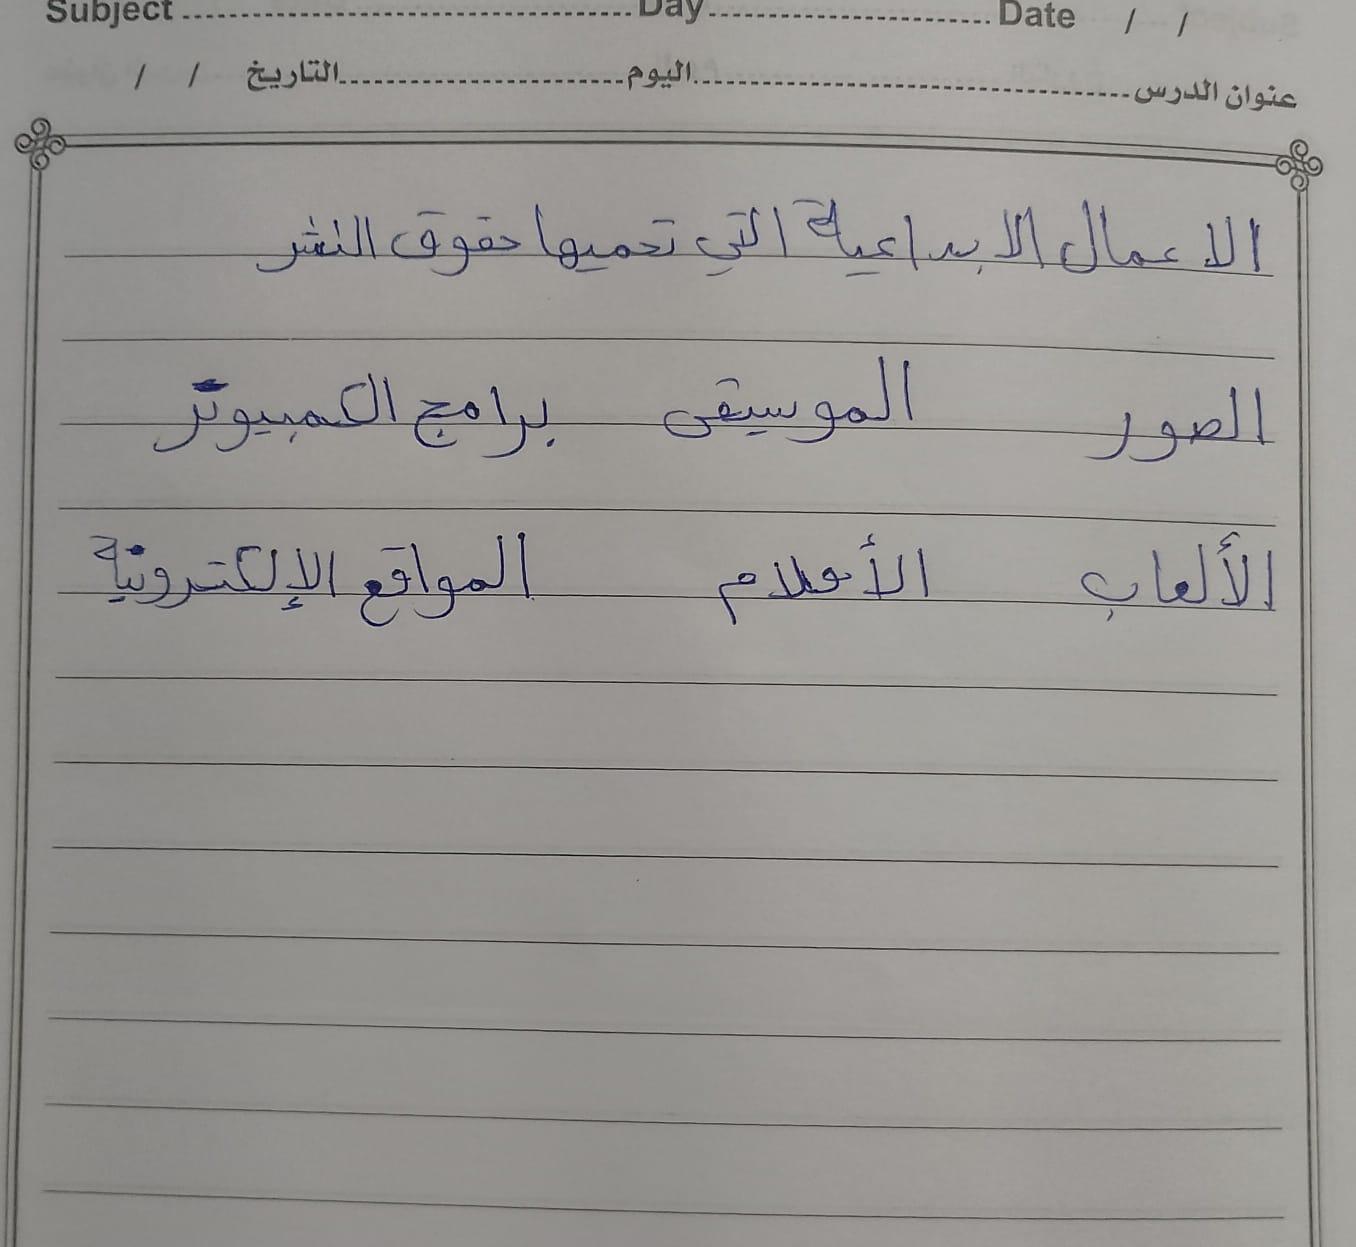 Subject ........ Day ........ Date / /
عنوان الدرس ........ اليوم ........ التاريخ / /
الاعمال الابداعية التي تحميها حقوق النشر
الصور الموسيقى برامج الكمبيوتر
الألعاب الأفلام المواقع الإلكترونية